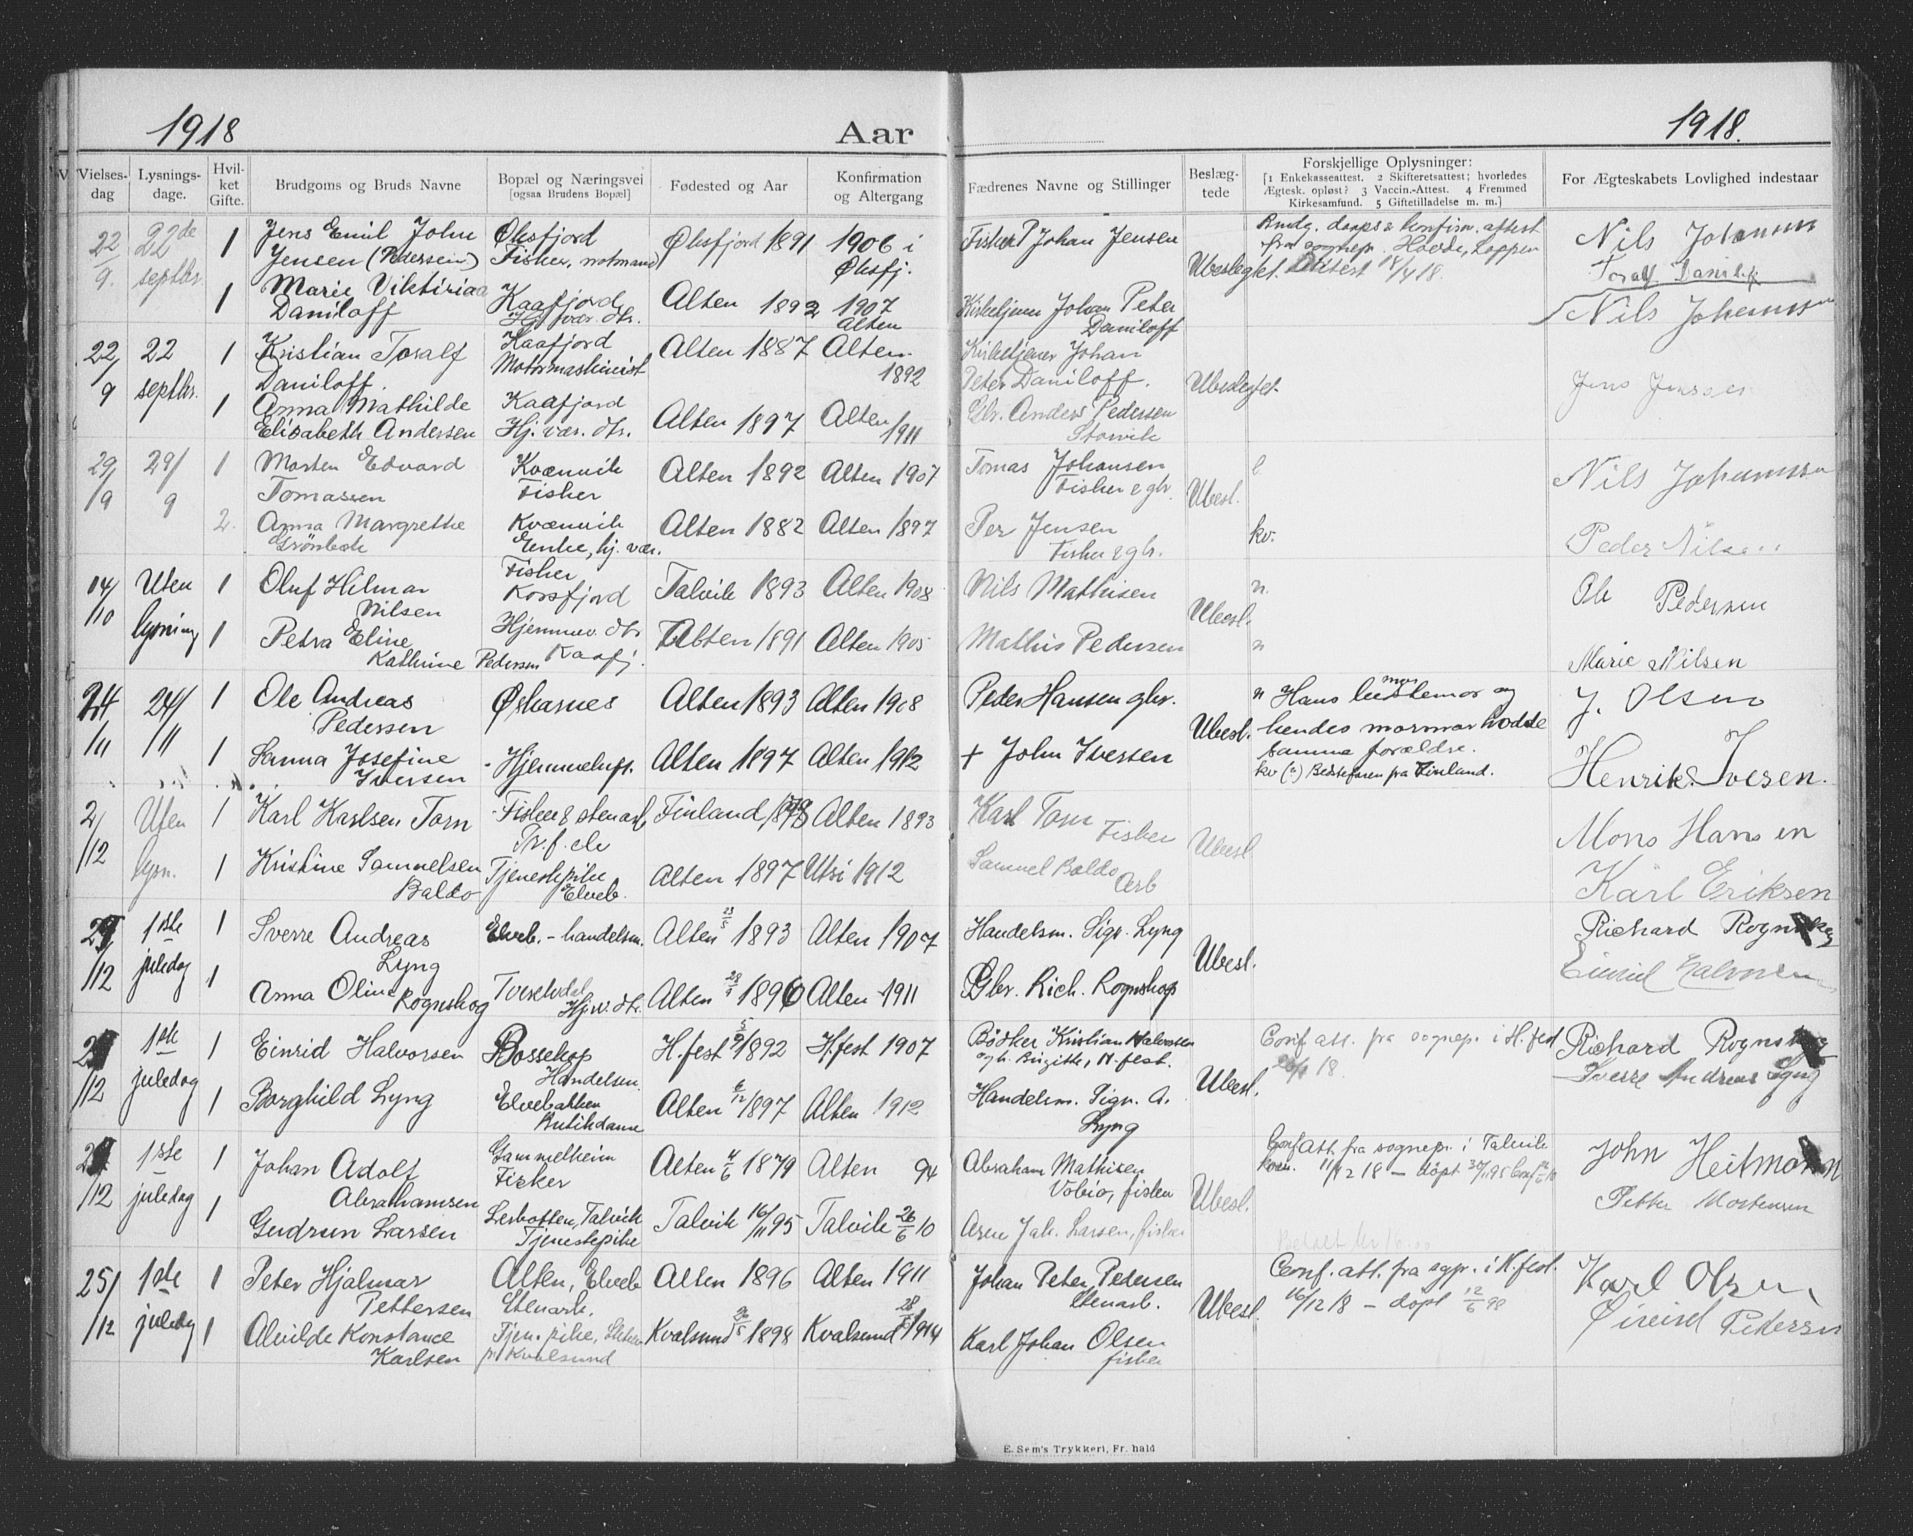 1918
Aar
1918.
Vielses-
dag
Lysnings-
dage.
Hvil-
ket
Gifte.
Brudgoms og Bruds Navne
Bopæl og Næringsvei
[ogsaa Brudens Bopæl]
Fødested og Aar
Konfirmation
og Altergang
Fædrenes Navne og Stillinger
Beslæg-
tede
Forskjellige Oplysninger:
[1 Enkekasseattest. 2 Skifteretsattest; hvorledes
Ægtesk. opløst? 3 Vaccin.-Attest. 4 Fremmed
Kirkesamfund. 5 Giftetilladelse m. m.]
For Ægteskabets Lovlighed indestaar
22/9. 22de septbr. 1 Jens Emil John
Jensen (Pedersen)
Øksfjord
Fisker, notmand
Øksfjord 1891
1906 i
Øksfj.
Fisker P Johan Jensen
Ubeslegtet.
fra sognepr. Loppen
Nils Johannss
Toralf Danilof
1 Marie Viktiria
Daniloff
Kaafjord
Hj. vær. dtr.
Alten 1892
1907
Alten
Kirketjener Johan Peter
Daniloff
Nils Johanss
22/9 22 septbr. 1 Kristian Toralf
Daniloff.
Kaafjord
Motormaskinist
Alten 1887
Alten
1892
Kirketjener Johan
Peter Daniloff.
Ubeslegtet.
Jens Jensen
1 Anna Mathilde
Elisabeth Andersen
Kaafjord
Hj. vær. dtr.
Alten 1897
Alten
1911
Gbr. Anders Pedersen
Storvik
29/9 29/9 1 Morten Edvard
Tomassen
Kvænvik
Fisker
Alten 1892
Alten 1907
Tomas Johansen
Fisker & gbr.
Ubesl.
Nils Johanss
2. Anna Margrethe
Grönbek
Kvænvik
Enke, hj. vær.
Alten 1882
Alten 1897
Per Jensen
Fisker & gbr.
kv.
Peder Nilsen
04/10 Uten lysning 1 Oluf Hilmar
Nilsen
Fisker
Korsfjord
Talvik 1893
Alten 1908
Nils Mathisen
Ubesl.
n.
Ole Pedersen
1 Petra Eline
Kathrine Pedersen
Hjemmev. dtr
Kaafj.
Alten 1891
Alten 1905
Mathis Pedersen
n
Marie Nilsen
24/11 24/11 1 Ole Andreas
Pedersen
Øskarnes
Alten 1893
Alten 1908
Peder Hansen gbr.
Ubesl.
n Hans og
hendes mormor hadde
samme forældre.
kv (n) Bedstefaren fra Finland.
J. Olsen
1 Sanna Josefine
Iversen
Hjemmeluft.
Alten 1897
Alten 1912
+ John Iversen
Henrik Ivesen.
2/12 Uten lysn. 1 Karl Karlsen Torn
Fisker & stenarb.
Tr. f. elv
Finland
Alten 1893
Karl Torn
Fisker
Ubesl
Mons Hansen
1 Kristine Sammelsen
Baldo
Tjenestepike
Elveb.
Alten 1897
Utsi 1912
Sammel Baldo
Arb
Karl Eriksen
/12 1ste juledag 1 Sverre Andreas
Lyng
Elveb. - handelsm.
Alten 23/5 1893
Alten 1907
Handelsm. Sigv. Lyng
Ubesl.
Richard Rognskog
1 Anna Oline
Rognskog
Tverelvdal
Hj. v. dtr.
Alten 1896
Alten 1911
Gbr. Rich. Rognskog
Einrid Halvorsen
/12 1ste juledag 1 Einrid Halvorsen
Bossekop
Handelsm.
H.fest 5/9 1892
H.fest 1907
Bödker Kristian Halvorsen
og h. Birgitte, H-fest.
Ubesl.
Conf att. fra sognepr. i H.fest
18.
Richard Rognskog
1 Borghild Lyng
Elvebakken
Butikdame
Alten 6/12 1897
Alten 1912
Handelsm. Sigv. A.
Lyng
Sverre Andreas Lyng
/12 1ste juledag 1 Johan Adolf
Abrahamsen
Gammelheim
Fisker
Alten 4/6 1879
Alten 94
Abraham Mathisen
Vobio, fisker
Ubesl.
Conf Att. fra sognepr. i Talvik
11/12 18 - döpt 30/11 95
John Heitmann
1 Gudrun Larsen
Lerbotten, Talvik
Tjenestepike
Talvik 16/11 95
Talvik 26/6 10
Aren Joh. Larsen, fisker
Betalt kr 16.00
Petter Mortensen
25/12 1ste juledag 1 Peter Hjalmar
Pettersen
Alten, Elveb
Stenarb.
Alten 1896
Alten 1911
Johan Peter Pedersen
Stenarb.
Ubesl.
Conf. att. fra sgpr. i H.fest.
16/12 18 - döpt 12/6 98
Karl Olsen
1 Alvilde Konstance
Karlsen
Tjen. pike,
Kvalsund
Kvalsund 1898
Kvalsund 1914
Karl Johan Olsen
fisker
Pedersen
E. Sem's Trykkeri, Fr. hald